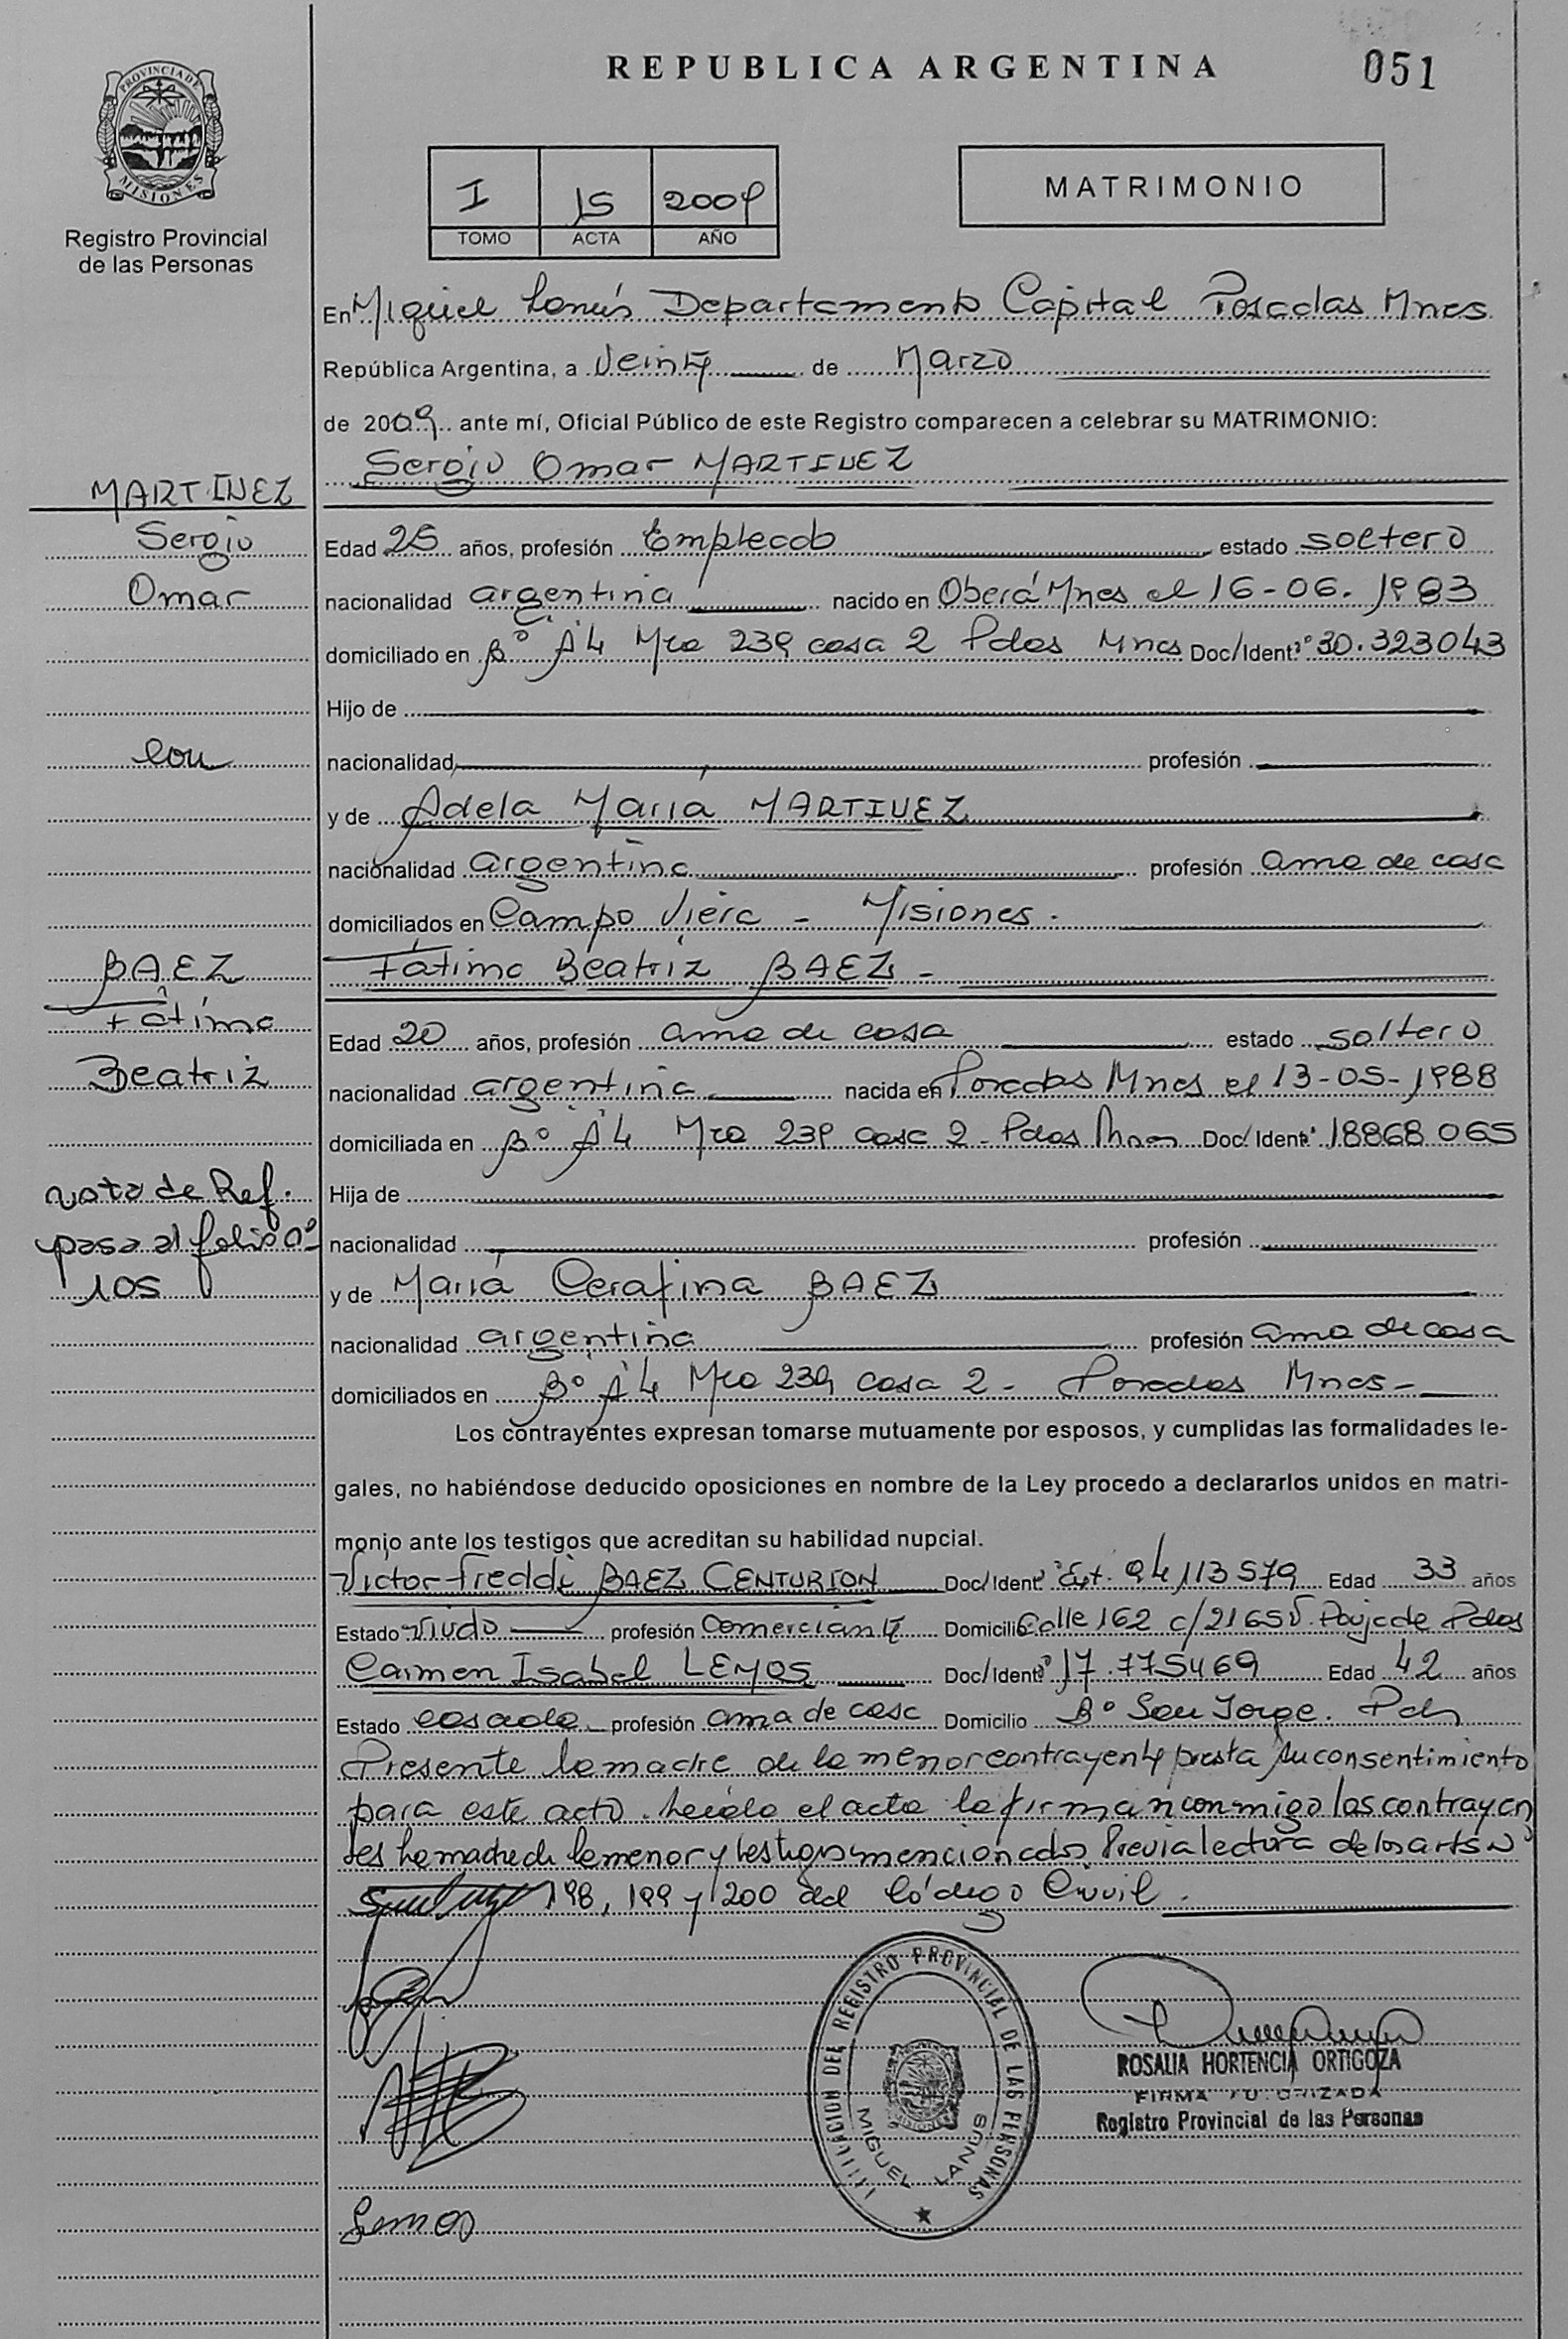 REPUBLICA ARGENTINA
051
PROVINCIA DE
MISIONES
Registro Provincial
de las Personas
I
15
2009
TOMO
ACTA
AÑO
MATRIMONIO
En Miguel Lanús Departamento Capital Posadas Mnes
República Argentina, a Veinte de Marzo
de 2009 ante mí, Oficial Público de este Registro comparecen a celebrar su MATRIMONIO:
Sergio Omar MARTINEZ
MARTINEZ
Sergio
Omar
con
BAEZ
Fátima
Beatriz
nota de Ref.
pasa al folio nº
105
Edad 25 años, profesión Empleado estado soltero
nacionalidad argentina nacido en Oberá Mnes el 16-06-1983
domiciliado en Bº A4 Mza 239 casa 2 Pdas Mnes Doc/Ident. 30.323043
Hijo de
nacionalidad profesión
y de Adela María MARTINEZ
nacionalidad argentina profesión ama de casa
domiciliados en Campo Viera - Misiones.
Fátima Beatriz BAEZ -
Edad 20 años, profesión ama de casa estado soltero
nacionalidad argentina nacida en Posadas Mnes el 13-05-1988
domiciliada en Bº A4 Mza 239 casa 2 - Pdas Mnes Doc/ Ident. 18868065
Hija de
nacionalidad profesión
y de María Cerafina BAEZ
nacionalidad argentina profesión ama de casa
domiciliados en Bº A4 Mza 239 casa 2 - Posadas Mnes -
Los contrayentes expresan tomarse mutuamente por esposos, y cumplidas las formalidades le-
gales, no habiéndose deducido oposiciones en nombre de la Ley procedo a declararlos unidos en matri-
monio ante los testigos que acreditan su habilidad nupcial.
Victor Freddi BAEZ CENTURION Doc/ Ident. Ext. 94113579 Edad 33 años
Estado Viudo profesión Comerciante Domicilio Calle 162 c/21650 Pdas
Carmen Isabel LEMOS Doc/ Ident. 17.775469 Edad 42 años
Estado casada profesión ama de casa Domicilio Bº San Jorge. Pdas
Presente la madre de la menor contrayente presta su consentimiento
para este acto. Leída el acta la firman conmigo los contrayen
tes la madre de la menor y testigos mencionados Previa lectura de los arts Nº
198, 199 y 200 del Código Civil.
DEL REGISTRO PROVINCIAL DE LAS PERSONAS
MIGUEL LANUS
ROSALIA HORTENCIA ORTIGOZA
FIRMA AUTORIZADA
Registro Provincial de las Personas
Lemos